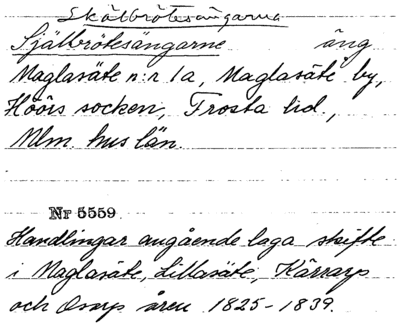 Skälbrötesängarna
Själbrötesängarne äng
Maglasäte n:r 1a, Maglasäte by,
Höörs socken, Frosta hd.,
Mlm. hus län.
Nr 5559
Handlingar angående laga skifte
i Maglasäte, Lillasäte, Kärrarp
och Osarp åren 1825-1839.